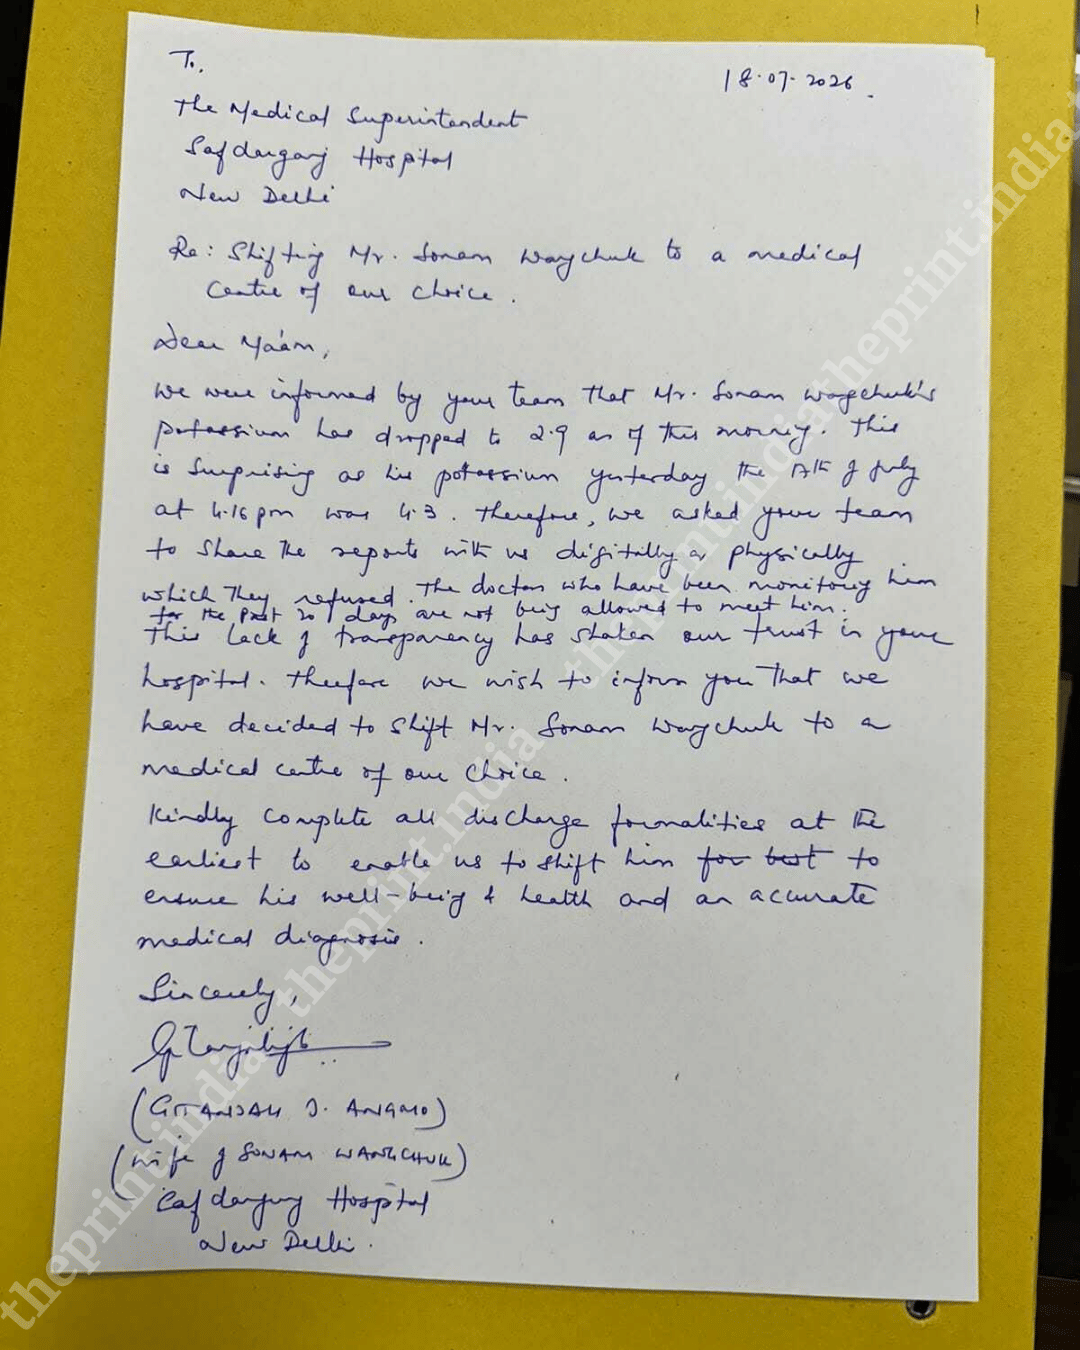 To,
18.07.2026
The Medical Superintendent
Safdarganj Hospital
New Delhi
Re: Shifting Mr. Sonam Wangchuk to a medical
centre of our choice.
Dear Ma'am,
We were informed by your team that Mr. Sonam Wangchuk's
potassium has dropped to 2.9 as of this morning. This
is surprising as his potassium yesterday the 17th of July
at 4.16 pm was 4.3. Therefore, we asked your team
to share the reports with us digitally or physically
which they refused. The doctors who have been monitoring him
for the past 20 days are not being allowed to meet him.
This lack of transparency has shaken our trust in your
hospital. Therefore we wish to inform you that we
have decided to shift Mr. Sonam Wangchuk to a
medical centre of our choice.
Kindly complete all discharge formalities at the
earliest to enable us to shift him for best to
ensure his well-being & health and an accurate
medical diagnosis.
Sincerely,
(GITANJALI J. ANGMO)
(Wife of SONAM WANGCHUK)
Safdarjung Hospital
New Delhi.
theprint.india theprint.india theprint.india theprint.india theprint.india